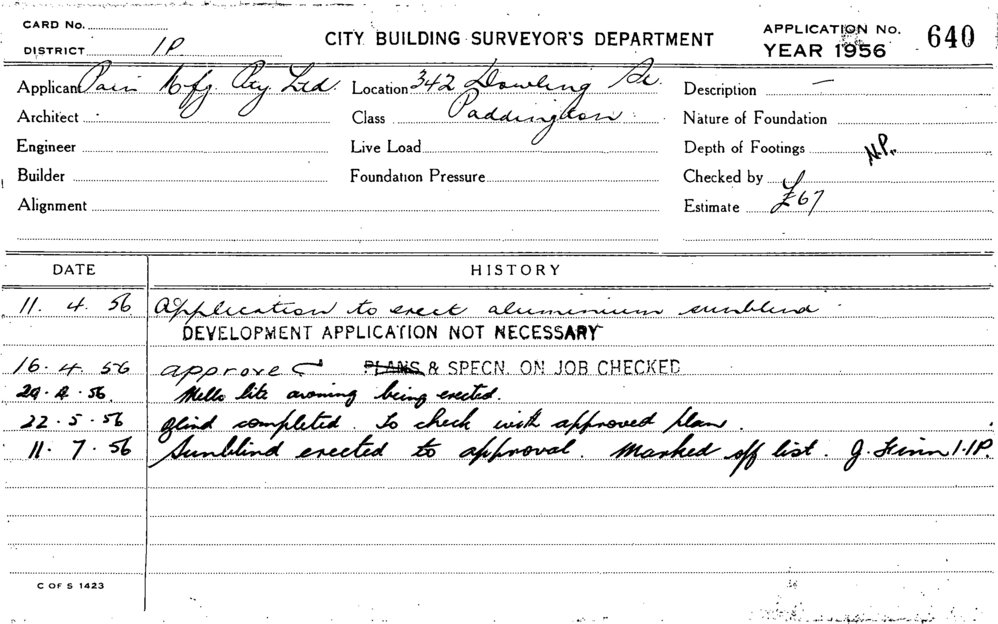 CARD No.
DISTRICT 1P
CITY BUILDING SURVEYOR'S DEPARTMENT
APPLICATION No. 640
YEAR 1956
Applicant Pain Mfg. Pty. Ltd. Location 342 Dowling St. Description —
Architect Class Paddington Nature of Foundation
Engineer Live Load Depth of Footings N.P.
Builder Foundation Pressure Checked by
Alignment Estimate £67
DATE HISTORY
11. 4. 56 Application to erect aluminium sunblind
DEVELOPMENT APPLICATION NOT NECESSARY
16. 4. 56 approve PLANS & SPECN. ON JOB CHECKED
56. Mello lite awning being erected.
22. 5. 56 Blind completed. To check with approved plan.
11. 7. 56 Sunblind erected to approval. Marked off list. J. Finn 1.1P.
C OF S 1423